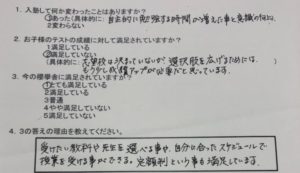 1. 入塾して何か変わったことはありますか?
①あった(具体的に: 自主的に勉強する時間が増えた事と意識のちがい
2変わらない
2. お子様のテストの成績に対して満足されていますか?
1満足している
②満足していない
(具体的に: 志望校は決まっていないが、選択肢を広げるためには、
もう少し成績アップが必要だと思っています。
3. 今の優學舎に満足されていますか?
①とても満足している
2満足している
3普通
4やや満足していない
5満足していない
4. 3の答えの理由を教えてください。
受けたい教科や先生を選べる事や、自分に合ったスケジュールで
授業を受ける事ができる。定額制という事も満足しています。